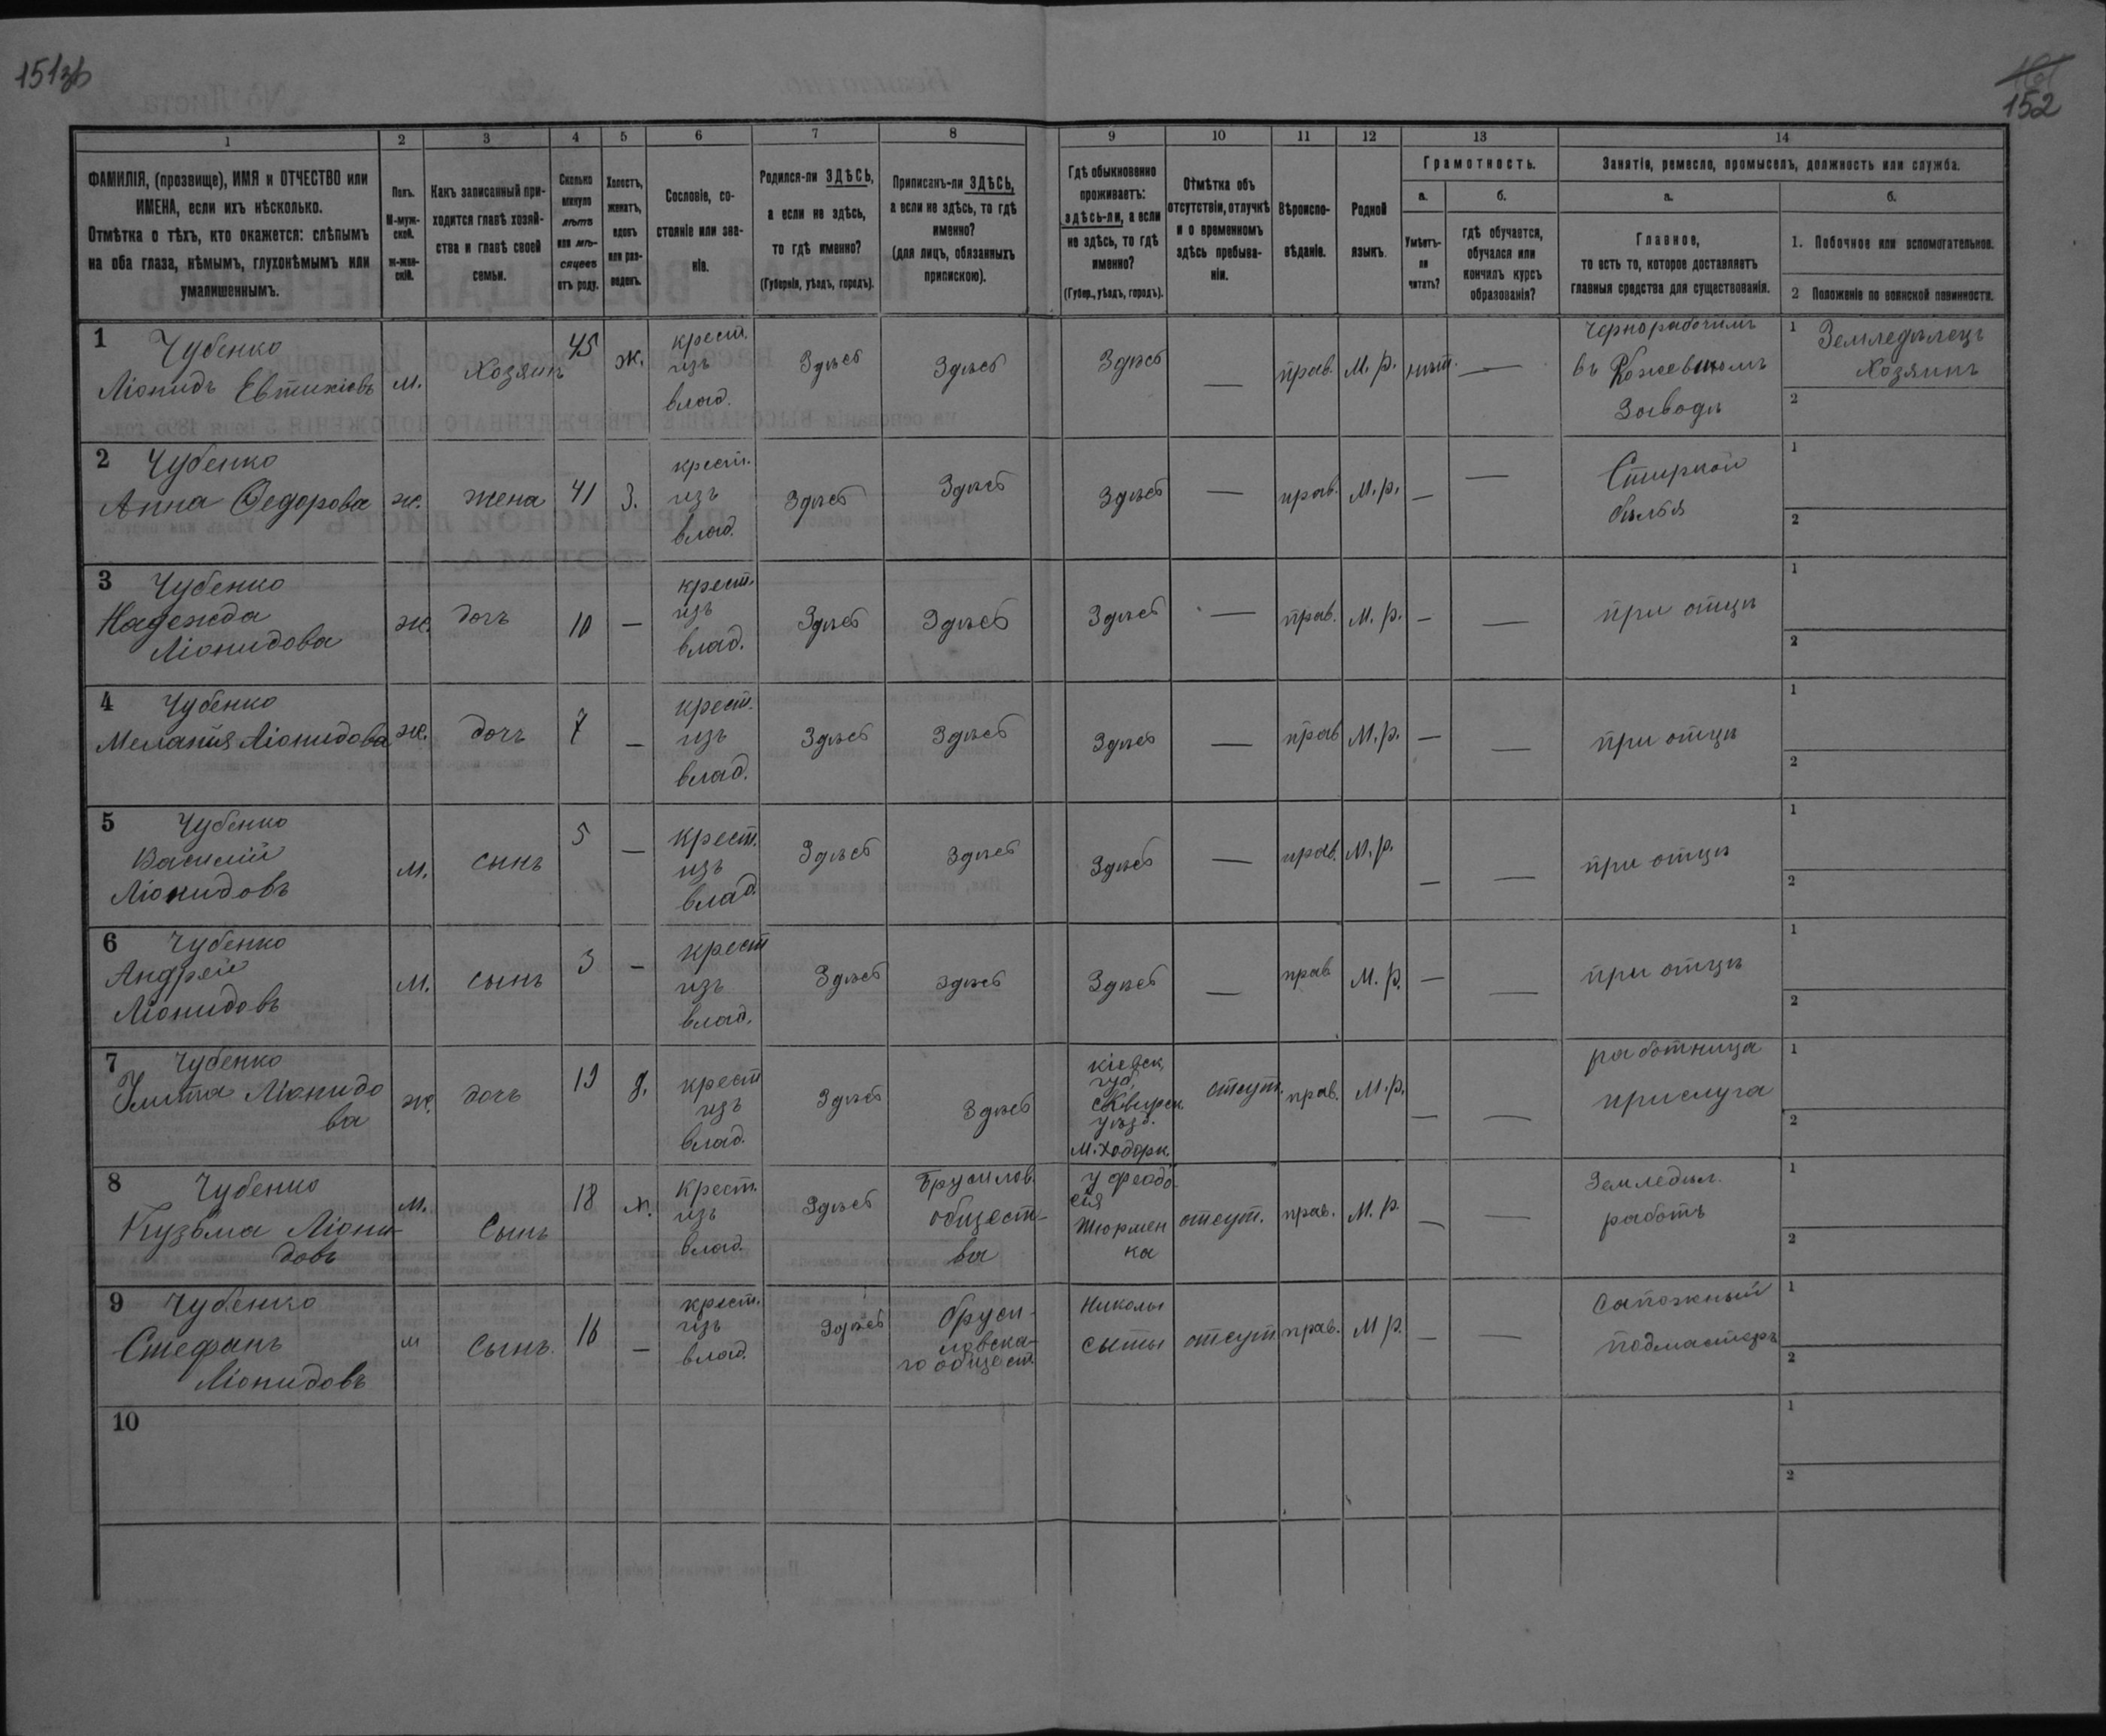 151зв
152
1
2
3
4
5
6
7
8
9
10
11
12
13
14
ФАМИЛІЯ, (прозвище), ИМЯ и ОТЧЕСТВО или
ИМЕНА, если ихъ нѣсколько.
Отмѣтка о тѣхъ, кто окажется: слѣпымъ
на оба глаза, нѣмымъ, глухонѣмымъ или
умалишеннымъ.
Полъ.
М-муж-
ской.
ж-жен-
скій.
Какъ записанный при-
ходится главѣ хозяй-
ства и главѣ своей
семьи.
Сколько
минуло
лѣтъ
или мѣ-
сяцевъ
отъ роду.
Холостъ,
женатъ,
вдовъ
или раз-
веденъ.
Сословіе, со-
стояніе или зва-
ніе.
Родился-ли ЗДѢСЬ,
а если не здѣсь,
то гдѣ именно?
(Губернія, уѣздъ, городъ).
Приписанъ-ли ЗДѢСЬ,
а если не здѣсь, то гдѣ
именно?
(для лицъ, обязанныхъ
припискою).
Гдѣ обыкновенно
проживаетъ:
здѣсь-ли, а если
не здѣсь, то гдѣ
именно?
(Губер., уѣздъ, городъ).
Отмѣтка объ
отсутствіи, отлучкѣ
и о временномъ
здѣсь пребыва-
ніи.
Вѣроиспо-
вѣданіе.
Родной
языкъ.
Грамотность.
а.
Умѣетъ-
ли
читать?
б.
гдѣ обучается,
обучался или
кончилъ курсъ
образованія?
Занятіе, ремесло, промыселъ, должность или служба.
а.
Главное,
то есть то, которое доставляетъ
главныя средства для существованія.
б.
1. Побочное или вспомогательное.
2 Положеніе по воинской повинности.
1
Чубенко
Ліонидъ Евтихіовъ
м.
Хозяинъ
45
ж.
крест.
изъ
влад.
Здѣсь
Здѣсь
Здѣсь
—
прав.
М. р.
нѣт.
—
Чернорабочимъ
въ Кожевномъ
Заводѣ
1
Земледѣлецъ
Хозяинъ
2
2
Чубенко
Анна Федорова
ж.
жена
41
З.
крест.
изъ
влад.
Здѣсь
Здѣсь
Здѣсь
—
прав.
М. р.
—
—
Стиркой
бѣлья
1
2
3
Чубенко
Надежда
Ліонидова
ж.
дочь
10
—
крест.
изъ
влад.
Здѣсь
Здѣсь
Здѣсь
—
прав.
М. р.
—
—
при отцѣ
1
2
4
Чубенко
Меланія Ліонидова
ж.
дочь
7
—
крест.
изъ
влад.
Здѣсь
Здѣсь
Здѣсь
—
прав
М. р.
—
—
при отцѣ
1
2
5
Чубенко
Василій
Ліонидовъ
м.
сынъ
5
—
крест.
изъ
влад.
Здѣсь
Здѣсь
Здѣсь
—
прав.
М. р.
—
—
при отцѣ
1
2
6
Чубенко
Андрей
Ліонидовъ
м.
сынъ
3
—
крест
изъ
влад.
Здѣсь
здѣсь
Здѣсь
—
прав
М. р.
—
—
при отцѣ
1
2
7
Чубенко
Улита Ліонидо
ва
ж.
дочь
19
д.
крест
изъ
влад.
Здѣсь
Здѣсь
Кіевск.
губ.
Сквирск.
уѣзд.
м. Ходорк.
отсут.
прав.
М. р.
—
—
работница
прислуга
1
2
8
Чубенко
Кузьма Ліони-
довъ
м.
Сынъ
18
х.
крест.
изъ
влад.
Здѣсь
Брусилов.
общест-
ва
у Феодо-
сія
Тюрмен
ка
отсут.
прав.
М. р.
—
—
Земледѣл.
работъ
1
2
9
Чубенко
Стефанъ
Ліонидовъ
м
сынъ.
16
—
крест.
изъ
влад.
Здѣсь
Бруси-
ловска-
го общест.
Николы
Сыты
отсут
прав.
М р.
—
—
Сапожный
подмастеръ
1
2
10
1
2